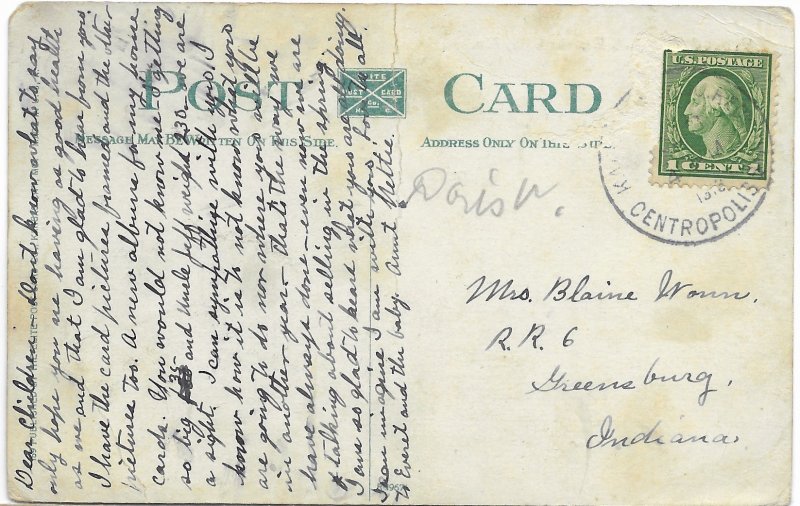 POST CARD
WHITE
POST CARD
Co.
MESSAGE MAY BE WRITTEN ON THIS SIDE.
ADDRESS ONLY ON THIS SIDE.
U.S. POSTAGE
1 CENT 1
CENTROPOLIS
KAN
Doris W.
Mrs. Blaine Wonn.
R.R. 6
Greensburg,
Indiana.
Dear Children:- Dont know what to say
only hope you are having as good health
as we and that I am glad to hear from you.
I have the card pictures framed and the other
pictures too. A new album for my house
cards. You would not know me I getting
so big 135 and Uncle Jeff weight 230 we are
a sight. I can sympathize with you. I
know how it is to not know what you
are going to do nor where you will be
in another year- that's the way we
have always done - even now we are
talking about selling in the spring.
I am so glad to hear what you are all doing.
I can imagine I am with you. love to all.
to Everet and the baby. Aunt Nettie.